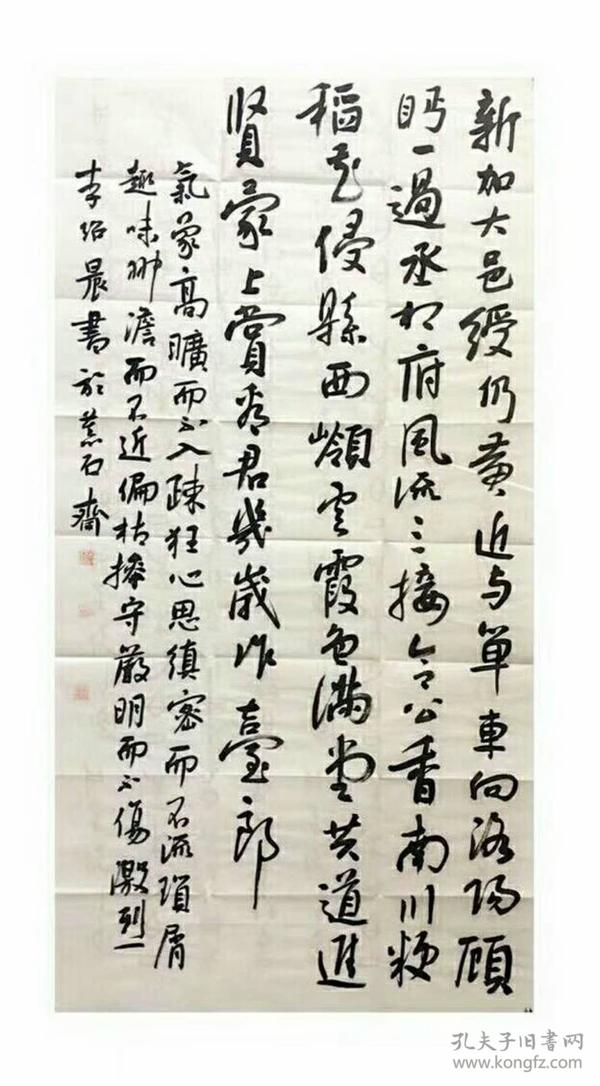 新加大邑綬仍黄近与單車向洛陽顧
眄一過丞相府風流三接令公香南川粳
稻花侵縣西嶺雲霞色滿堂共道進
賢蒙上賞看君幾歲作臺郎
氣象高曠而不入疎狂心思縝密而不流瑣屑
趣味沖澹而不近偏枯操守嚴明而不傷激烈
李紹晨書於石齋
孔夫子旧书网
www.kongfz.com